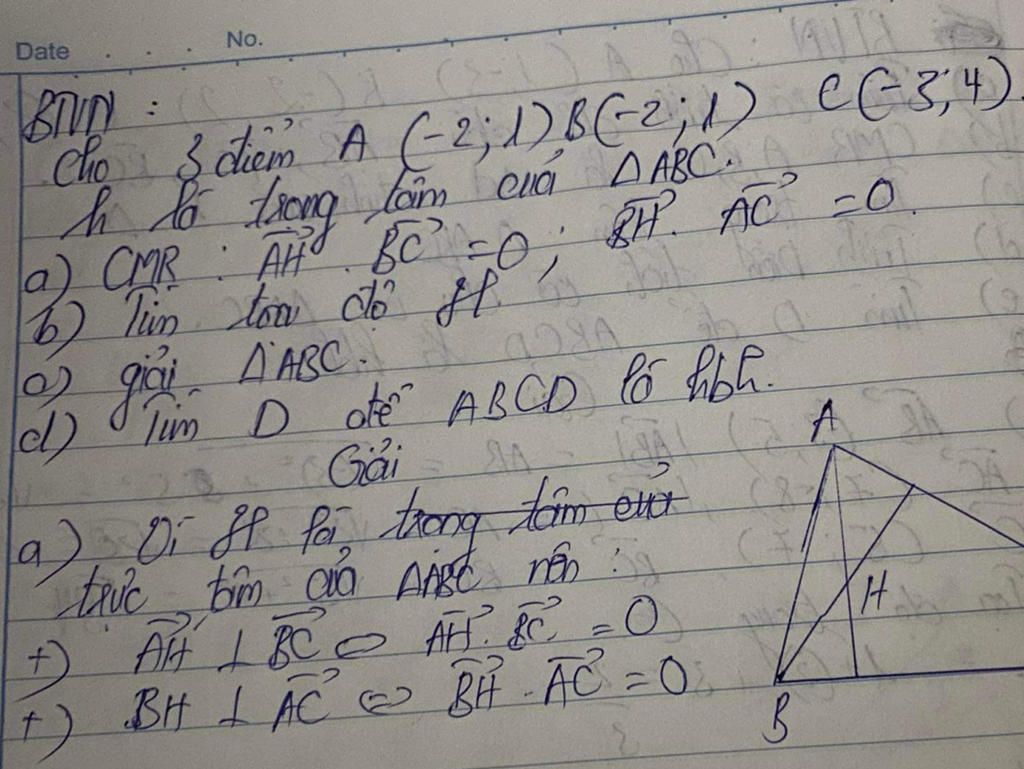 Date No.
BTVN :
Cho 3 điểm A (-2; 1) B(-2; 1) C(-3; 4).
h là trọng tâm của ΔABC.
a) CMR : AH→ . BC→ = 0 ; BH→ . AC→ = 0.
b) Tìm toạ độ H
c) giải ΔABC.
d) Tìm D để ABCD là hbh.
Giải
a) Vì H là trọng tâm của
trực tâm của ΔABC nên :
+) AH→ ⊥ BC→ ⇔ AH→ . BC→ = 0
+) BH ⊥ AC→ ⇔ BH→ . AC→ = 0
A
H
B